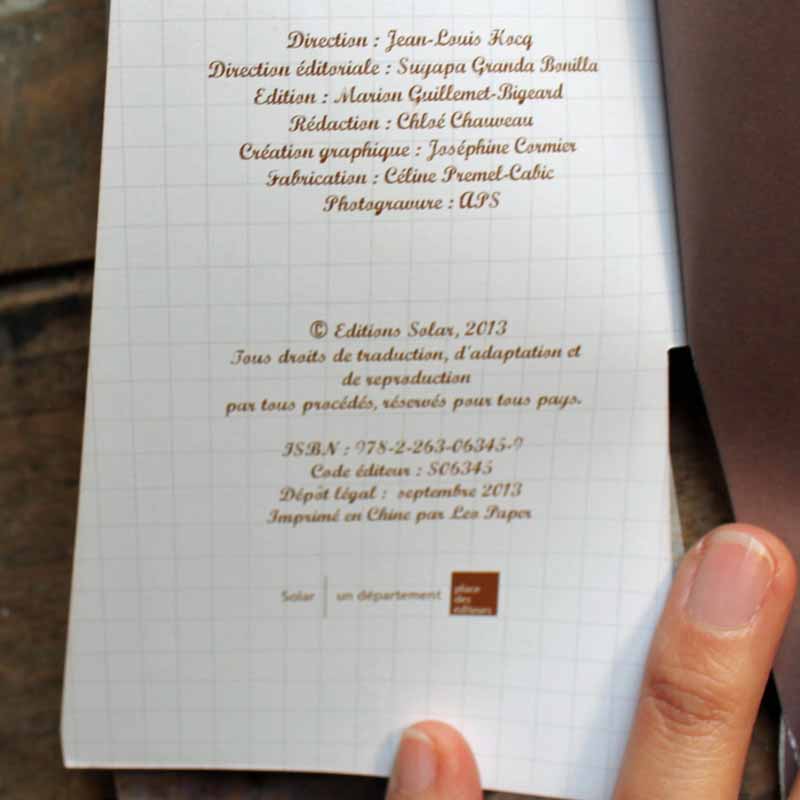 Direction : Jean-Louis Hocq
Direction éditoriale : Suyapa Granda Bonilla
Edition : Marion Guillemet-Bigeard
Rédaction : Chloé Chauveau
Création graphique : Joséphine Cormier
Fabrication : Céline Premel-Cabic
Photogravure : APS
© Editions Solar, 2013
Tous droits de traduction, d'adaptation et
de reproduction
par tous procédés, réservés pour tous pays.
ISBN : 978-2-263-06345-9
Code éditeur : S06345
Dépôt légal : septembre 2013
Imprimé en Chine par Leo Paper
Solar | un département
place
des
éditeurs